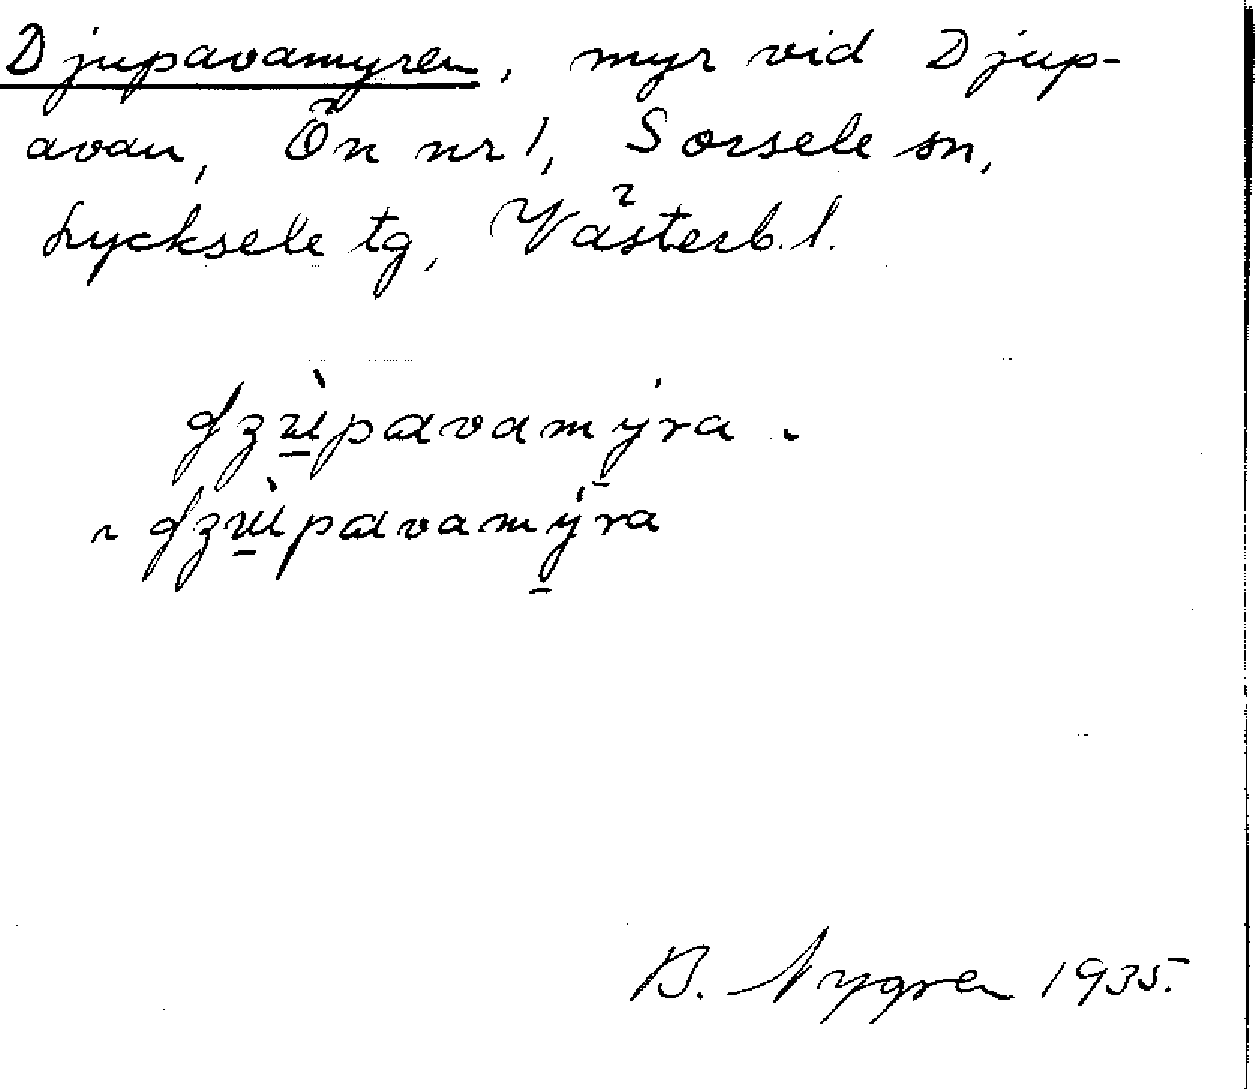 Djupavamyren, myr vid Djup-
avan, Ön nr 1, Sorsele sn,
Lycksele tg, Västerb. l.
B. Nygren 1935.